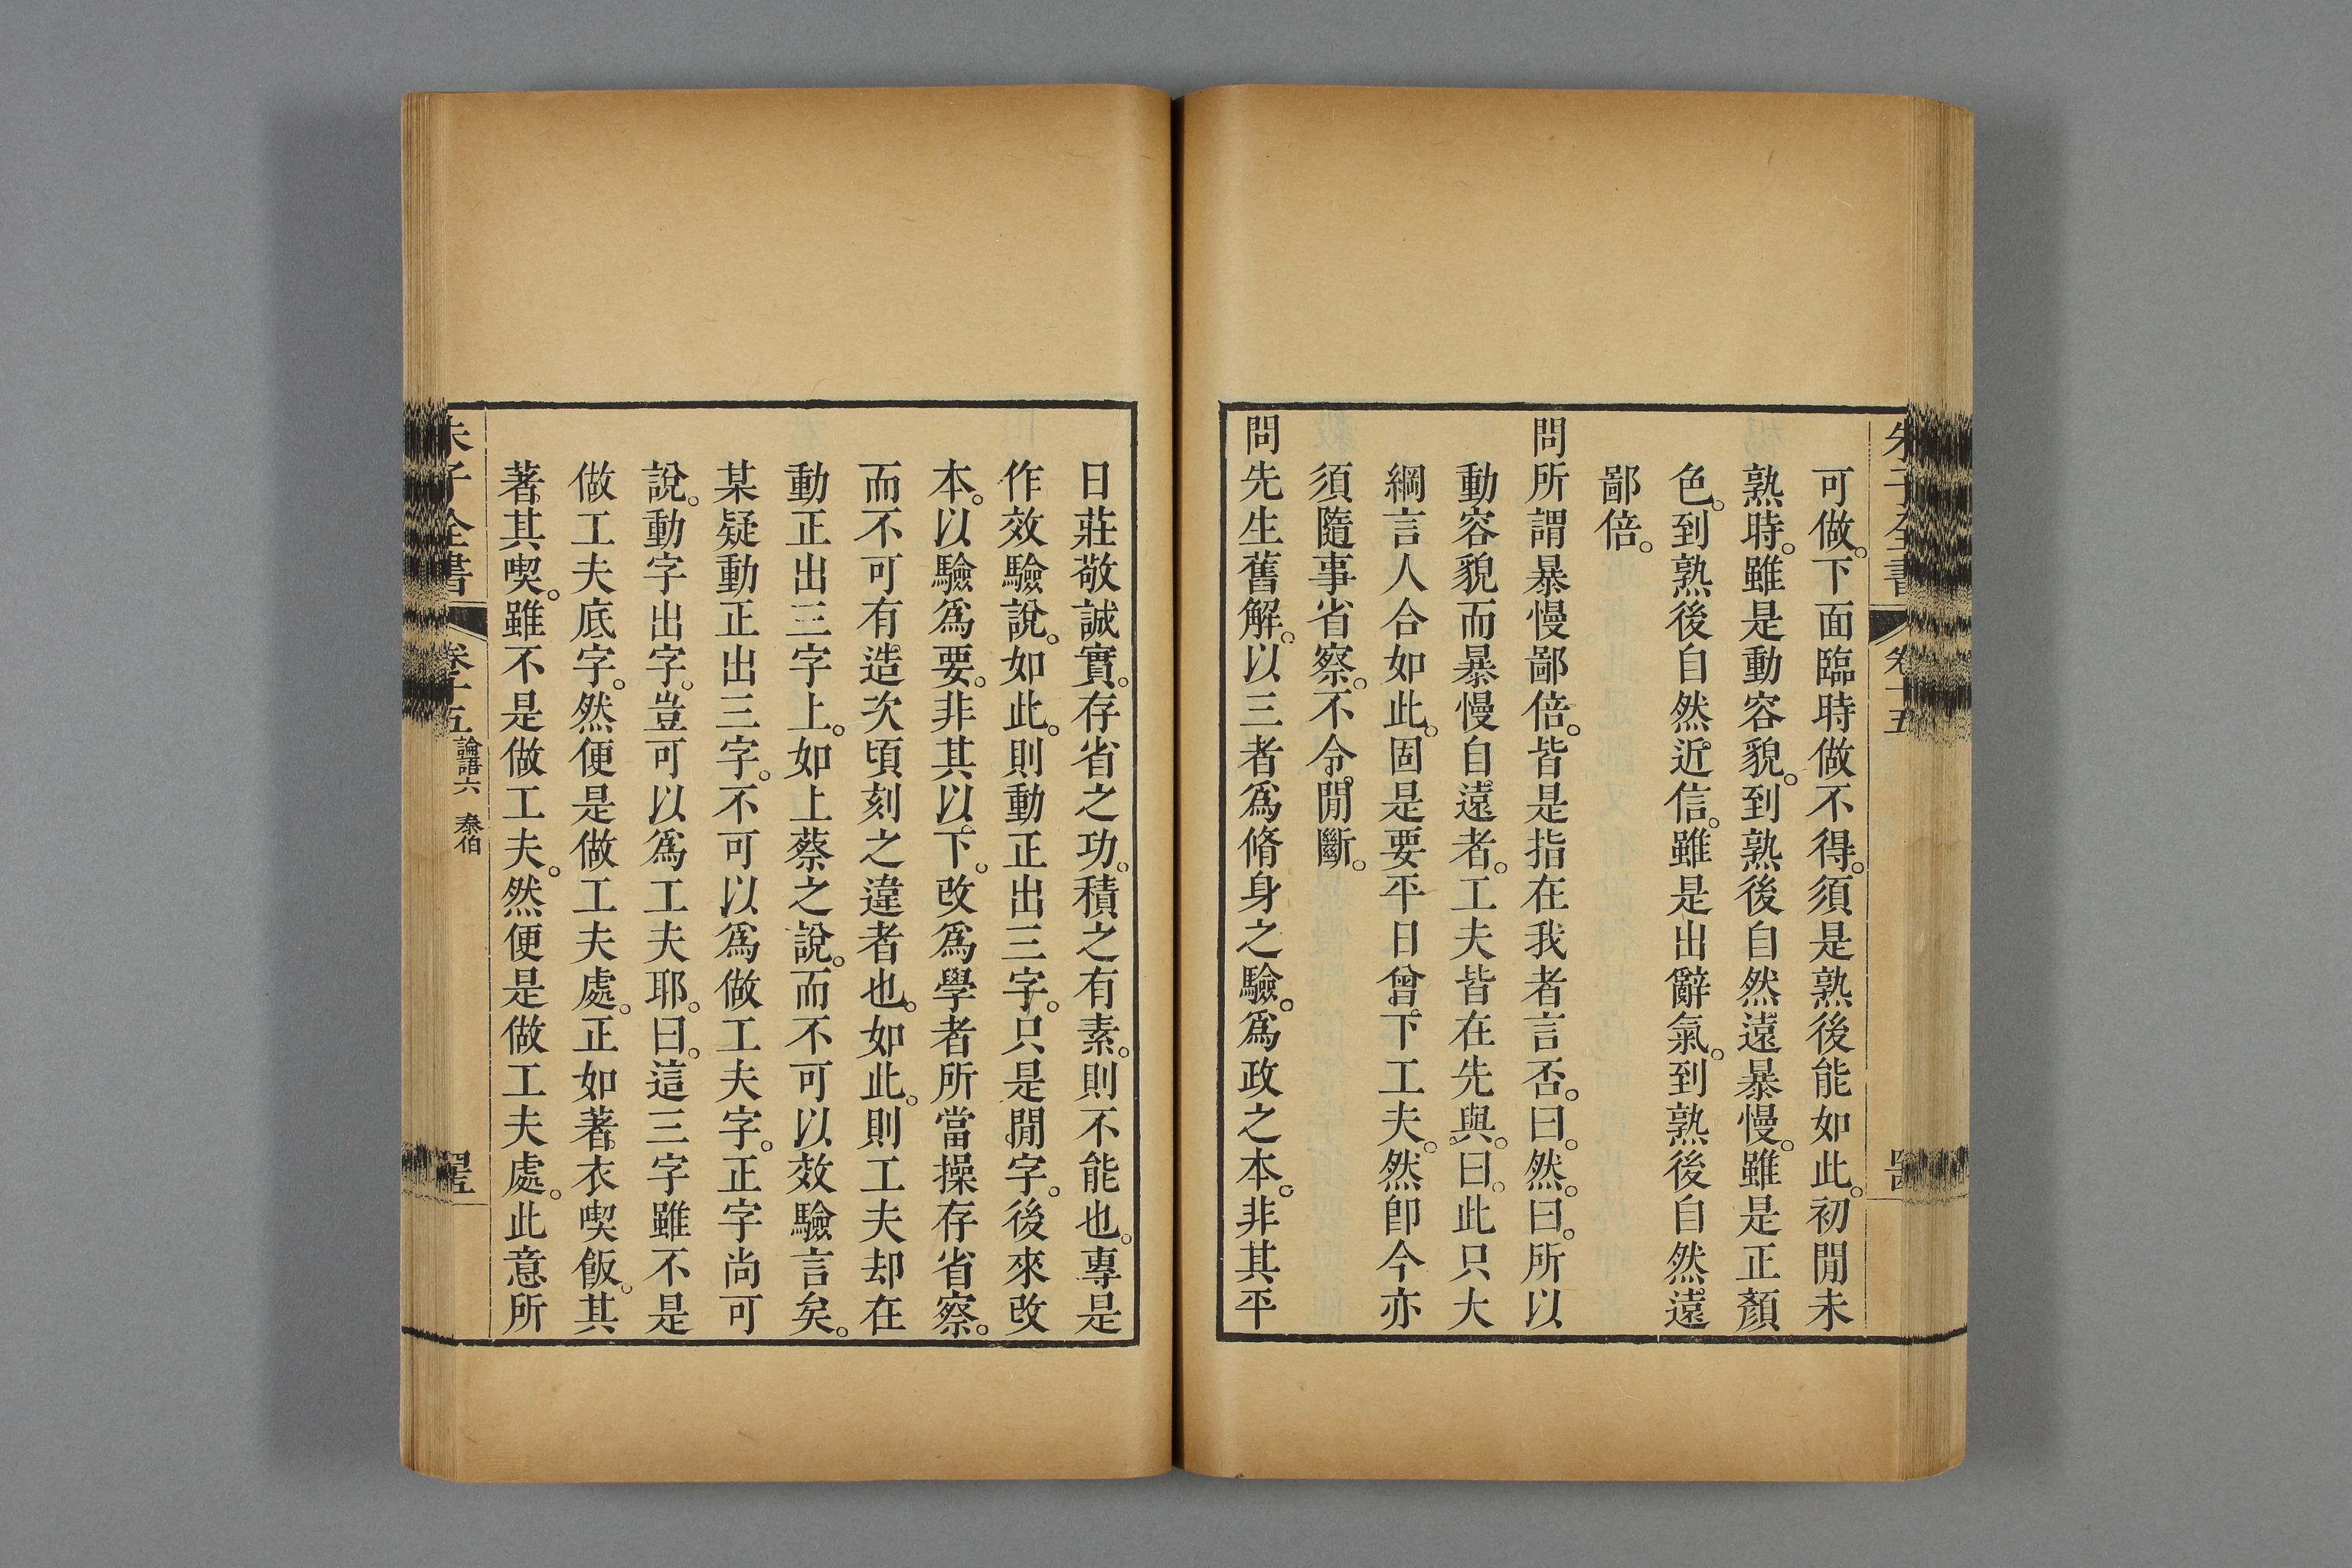 朱子全書 卷十五
可做。下面臨時做不得。須是熟後能如此。初閒未
熟時。雖是動容貌。到熟後自然遠暴慢。雖是正顏
色。到熟後自然近信。雖是出辭氣。到熟後自然遠
鄙倍。
問所謂暴慢鄙倍。皆是指在我者言否。曰。然。曰。所以
動容貌而暴慢自遠者。工夫皆在先與。曰。此只大
綱言人合如此。固是要平日曾下工夫。然卽今亦
須隨事省察。不令閒斷。
問先生舊解。以三者爲脩身之驗。爲政之本。非其平
日莊敬誠實。存省之功。積之有素。則不能也。專是
作效驗說。如此。則動正出三字。只是閒字。後來改
本。以驗爲要。非其以下。改爲學者所當操存省察。
而不可有造次頃刻之違者也。如此。則工夫却在
動正出三字上。如上蔡之說。而不可以效驗言矣。
某疑動正出三字。不可以爲做工夫字。正字尚可
說。動字出字。豈可以爲工夫耶。曰。這三字雖不是
做工夫底字。然便是做工夫處。正如著衣喫飯。其
著其喫。雖不是做工夫。然便是做工夫處。此意所
朱子全書 卷十五 論語六 泰伯